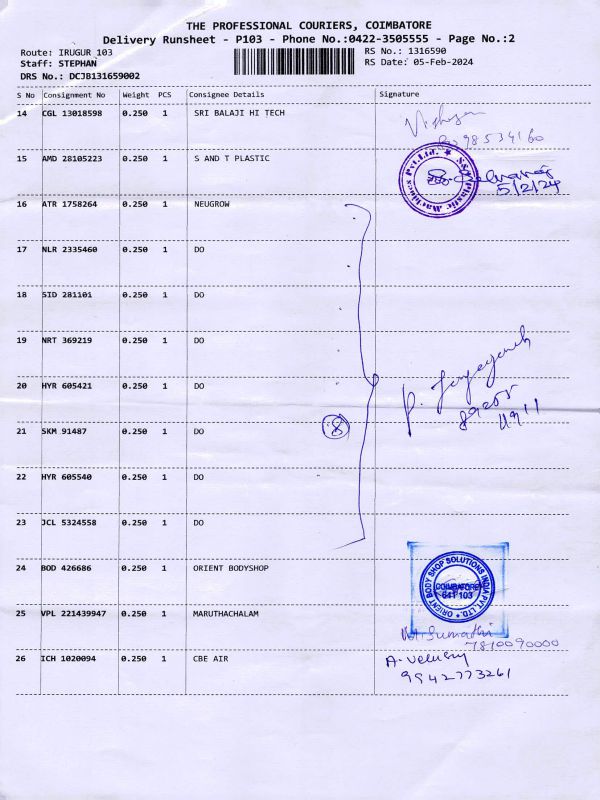 THE PROFESSIONAL COURIERS, COIMBATORE
Delivery Runsheet - P103 - Phone No.:0422-3505555 - Page No.:2
Route: IRUGUR 103 RS No.: 1316590
Staff: STEPHAN RS Date: 05-Feb-2024
DRS No.: DCJB131659002
S No Consignment No Weight PCS Consignee Details Signature
14 CGL 13018598 0.250 1 SRI BALAJI HI TECH
15 AMD 28105223 0.250 1 S AND T PLASTIC
5/2/24
16 ATR 1758264 0.250 1 NEUGROW
17 NLR 2335460 0.250 1 DO
18 SID 281101 0.250 1 DO
19 NRT 369219 0.250 1 DO
20 HYR 605421 0.250 1 DO
21 SKM 91487 0.250 1 DO
8
22 HYR 605540 0.250 1 DO
23 JCL 5324558 0.250 1 DO
24 BOD 426686 0.250 1 ORIENT BODYSHOP
ORIENT BODY SHOP SOLUTIONS INDIA PVT LTD.
COIMBATORE
641 103
25 VPL 221439947 0.250 1 MARUTHACHALAM
Sumathi
7810090000
26 ICH 1020094 0.250 1 CBE AIR
A. Velusy
9942773261